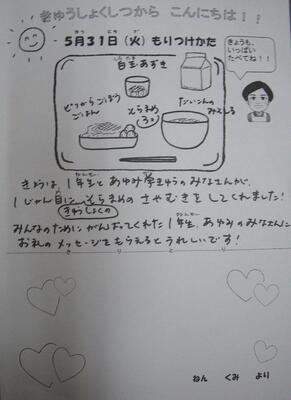 きゅうしょくしつから こんにちは！！
5月31日(火) もりつけかた
きょうも、
いっぱい
たべてね！！
白玉あずき
ピリからごぼう
ごはん
そらまめ
だいこんの
みそしる
きょうは 1年生と あゆみ学きゅうの みなさんが、
1じかん目に そらまめの さやむきを してくれました！
きゅうしょくの
みんなのために がんばってくれた 1年生、あゆみの みなさんに
お礼の メッセージを もらえると うれしいです！
きりとり
ねん くみ より